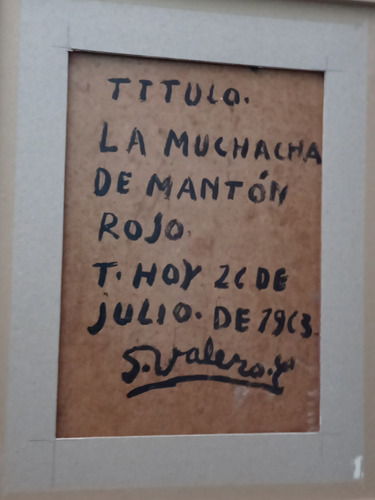 TITULO.
LA MUCHACHA
DE MANTÓN
ROJO.
T. HOY 26 DE
JULIO. DE 1963.
S. Valero. Y